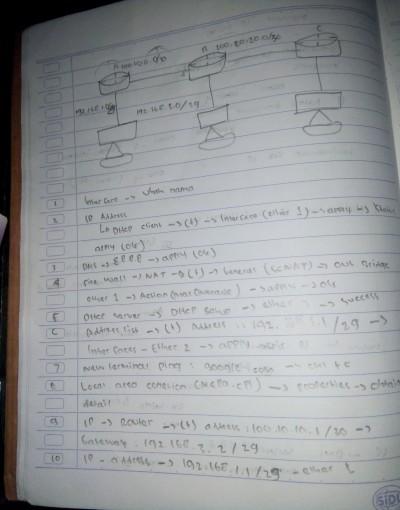 A 100.10.0/30 B 200.20.20.0/30 C
192.168.1.0/29 192.168.2.0/29
1 Interface -> ubah nama
2 IP Address
Ln DHCP client -> (+) -> Interface (ether 1) -> apply ->
apply (ok)
3 DNS -> 8.8.8.8 -> apply (ok)
4 Fire wall -> NAT -> (+) -> General (SCNAT) -> Out
ether 1 -> Action (masquerade) -> apply -> ok
5 DHCP server -> DHCP setup -> ether 2 -> success
6 Address list -> (+) Address : 192. 1.1 / 29 ->
Interfaces - Ether 2 -> apply
7 New terminal ping : google.com -> ctrl + c
8 Local area conection (ncpa.cpl) -> properties ->
detail
9 IP -> Router -> (+) address : 100.10.10.1 / 30 ->
Gateway : 192.168.2.2 / 29
10 IP - address -> 192.168.1.1 / 29 - ether 1
SIDU